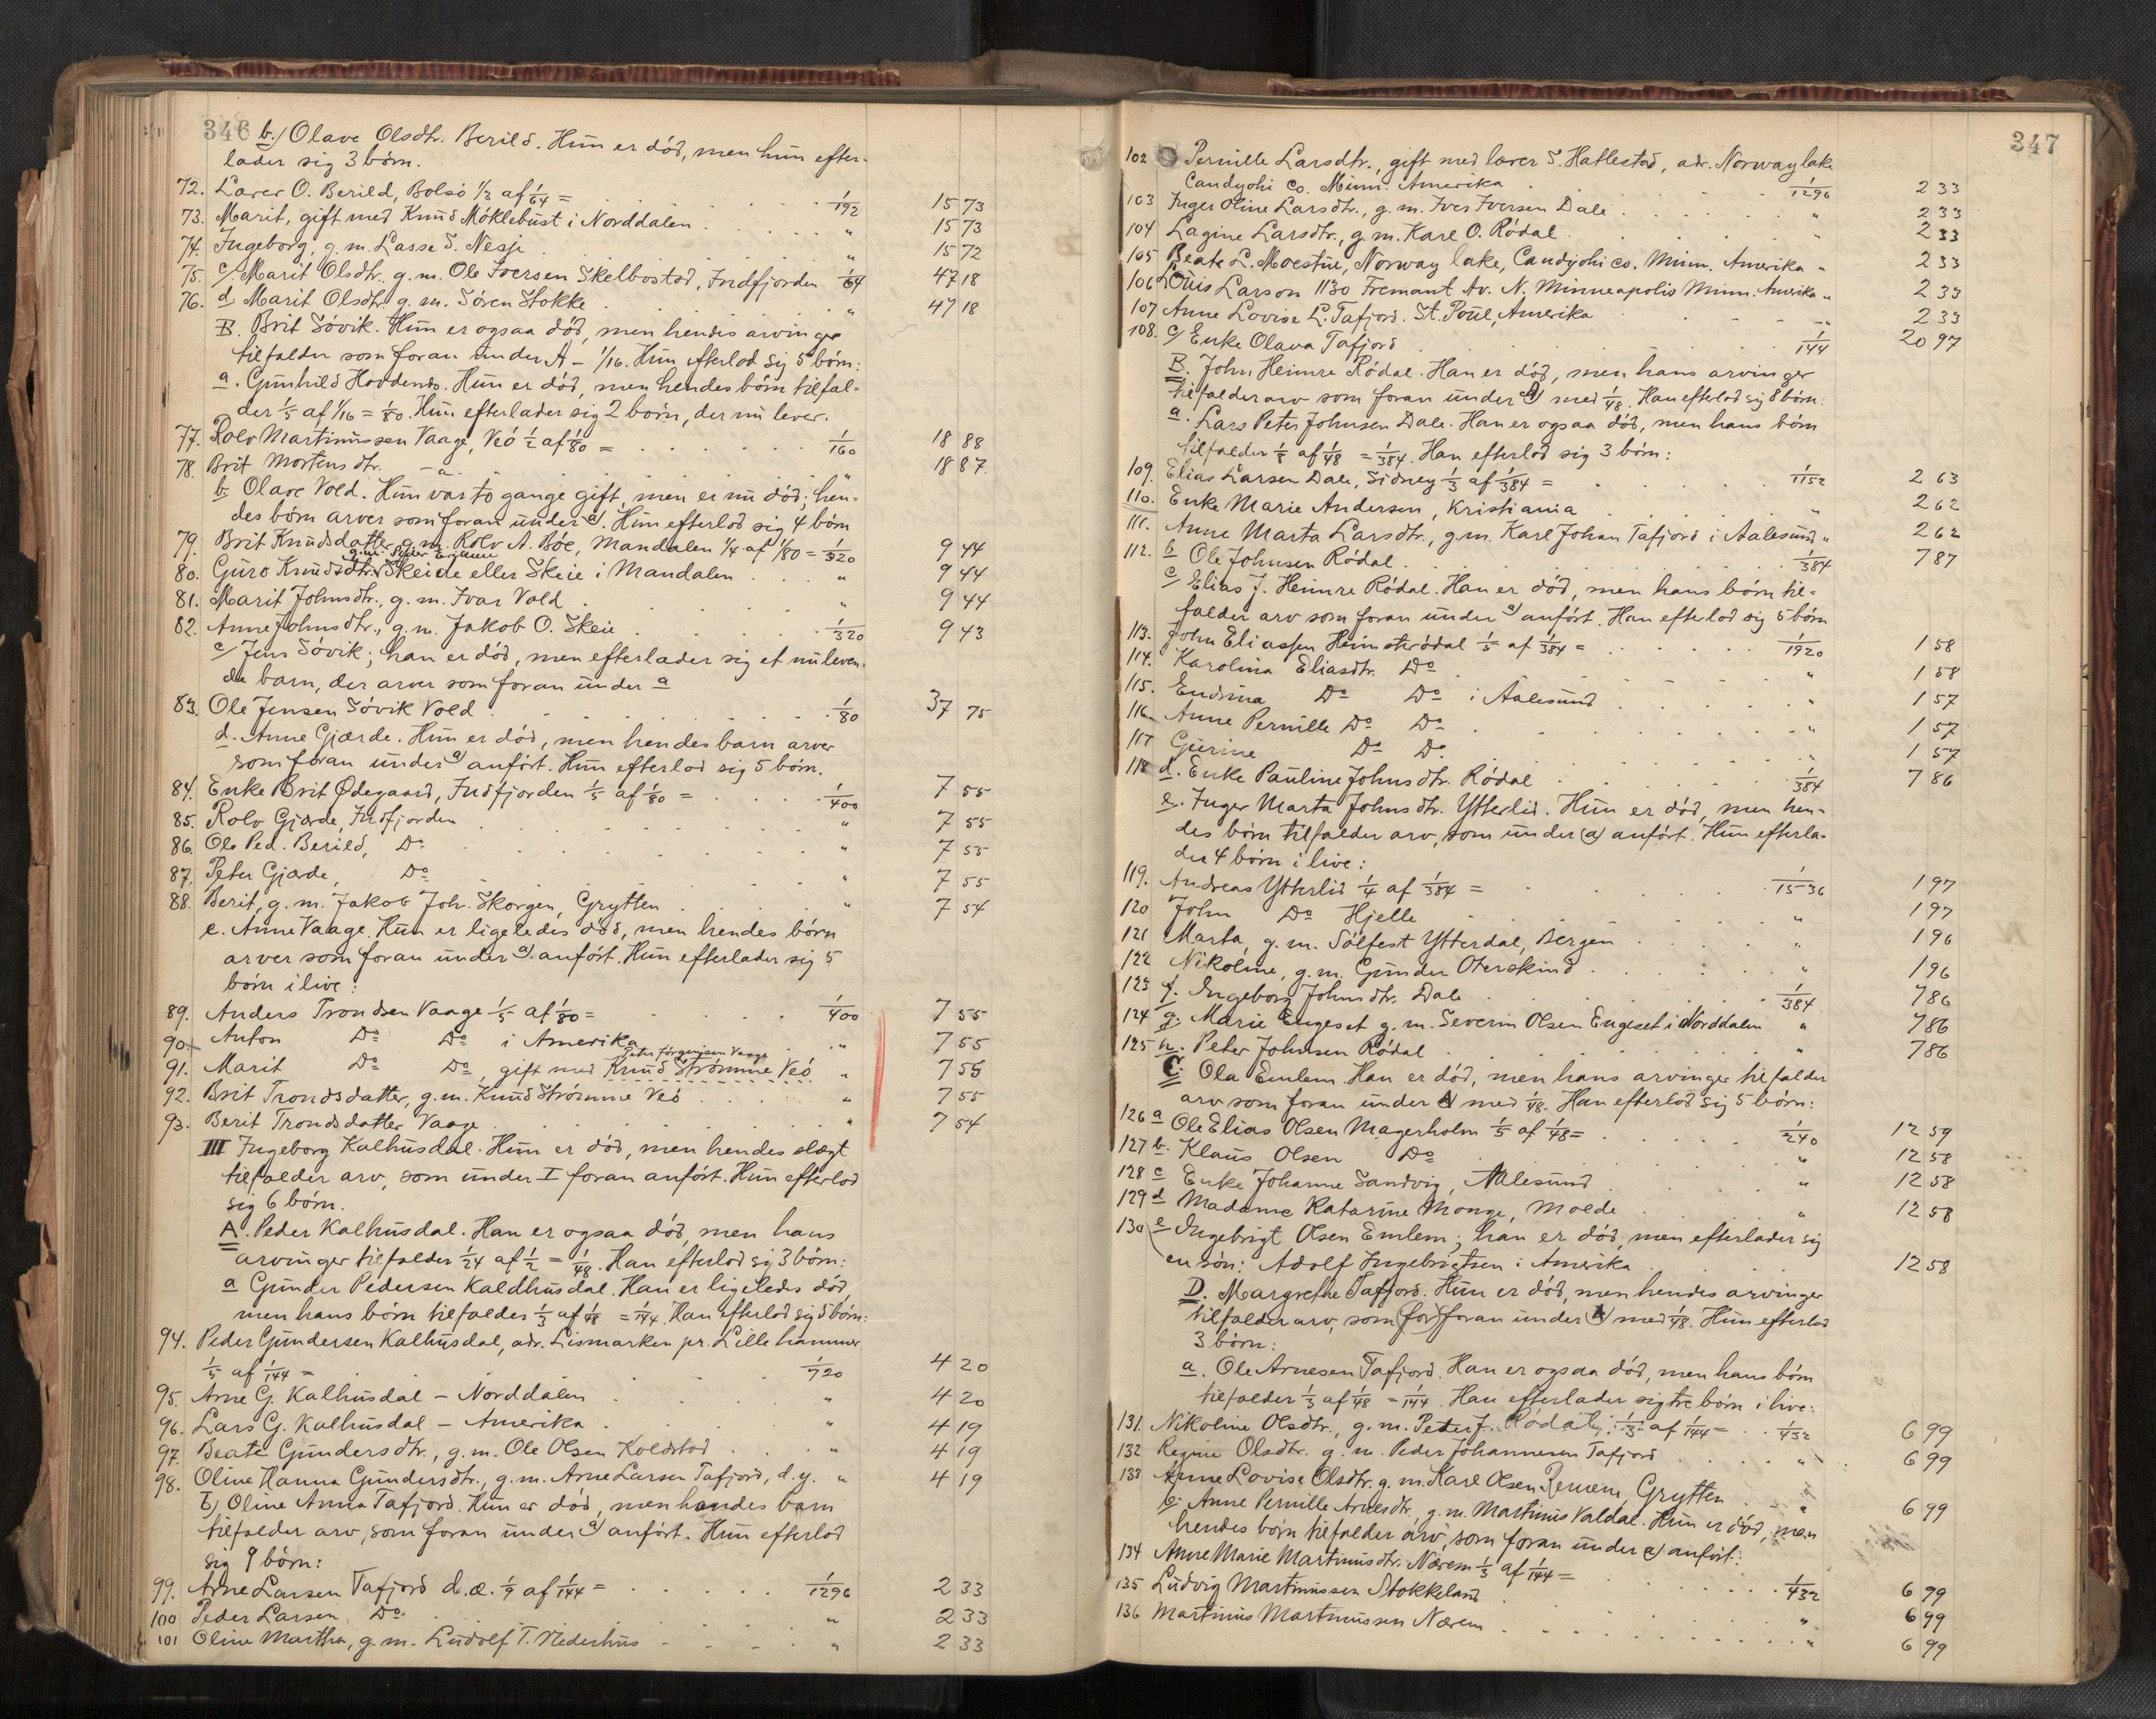 346 b./ Olave Olsdtr. Berild. Hun er død, men hun efter-
lader sig 3 børn.
72. Lærer O. Berild, Bolsø 1/3 af 1/64 = 1/192 15 73
73. Marit, gift med Knud Møklebust i Norddalen " 15 73
74. Ingeborg, g. m. Lasse S. Nesje " 15 72
75. c/ Marit Olsdtr. g. m. Ole Iversen Skelbostad, Indfjorden 1/64 47 18
76. d Marit Olsdtr g. m. Søren Stokke " 47 18
B. Brit Søvik. Hun er ogsaa død, men hendes arvinger
tilfalder som foran under A - 1/16. Hun efterlod sig 5 børn:
a. Gunhild Hovdenes. Hun er død, men hendes børn tilfal-
der 1/5 af 1/16 = 1/80. Hun efterlader sig 2 børn, der nu lever.
77. Rolv Martinussen Vaage, Veø 1/2 af 1/80 = 1/160 18 88
78. Brit Mortensdtr. " 18 87.
b. Olave Vold. Hun var to gange gift, men er nu død; hen-
des børn arver som foran under a). Hun efterlod sig 4 børn
79. Brit Knudsdatter g. m. Rolv A. Bøe, Mandalen 1/4 af 1/80 = 1/320 9 44
80. Guro Knudsdtr. Skeide eller Skeie i Mandalen " 9 44
81. Marit Johnsdtr., g. m. Ivar Vold " 9 44
82. Anne Johnsdtr., g. m. Jakob O. Skeie 1/320 9 43
c/ Jens Søvik; han er død, men efterlader sig et nuleven-
de barn, der arver som foran under a
83. Ole Jensen Søvik Vold 1/80 37 75
d. Anne Gjærde. Hun er død, men hendes barn arver
som foran under a) anført. Hun efterlod sig 5 børn.
84. Enke Brit Ødegaard, Indfjorden 1/5 af 1/80 = 1/400 7 55
85. Rolv Gjærde, Indfjorden " 7 55
86. Ole Ped. Berild, Do " 7 55
87. Peter Gjærde, Do " 7 55
88. Berit, g. m. Jakob Joh. Skorgen, Grytten " 7 54
e. Anne Vaage. Hun er ligeledes død, men hendes børn
arver som foran under a) anført. Hun efterlader sig 5
børn i live:
89. Anders Trondsen Vaage 1/5 af 1/80 = 1/400 7 55
90+ Anton Do Do i Amerika " 7 55
Peter Jørgensen Vaage
91. Marit Do Do, gift med Knud Strømme Veø " 7 55
92. Brit Trondsdatter, g. m. Knud Strømme Veø " 7 55
93. Berit Trondsdatter Vaage " 7 54
III Ingeborg Kalhusdal. Hun er død, men hendes slægt
tilfalder arv, som under I foran anført. Hun efterlod
sig 6 børn.
A. Peder Kalhusdal. Han er ogsaa død, men hans
arvinger tilfalder 1/24 af 1/2 = 1/48. Han efterlod sig 3 børn:
a Gunder Pedersen Kaldhusdal. Han er ligeledes død,
men hans børn tilfalder 1/3 af 1/48 = 1/144. Han efterlod sig 5 børn:
94. Peder Gundersen Kalhusdal, adr. Lismarken pr. Lillehammer
1/5 af 1/144 = 1/720 4 20
95. Arne G. Kalhusdal - Norddalen " 4 20
96. Lars G. Kalhusdal - Amerika " 4 19
97. Beate Gundersdtr., g. m. Ole Olsen Koldstad " 4 19
98. Oline Hanna Gundersdtr., g. m. Arne Larsen Tafjord, d. y. " 4 19
b) Oline Anna Tafjord. Hun er død, men hendes barn
tilfalder arv, som foran under a) anført. Hun efterlod
sig 9 børn:
99. Arne Larsen Tafjord d. æ. 1/9 af 1/144 = 1/1296 2 33
100 Peder Larsen Do " 2 33
101 Oline Martha, g. m. Ludolf T. Nederhus " 2 33
347
102 Pernille Larsdtr., gift med lærer S. Hatlestad, adr. Norway lake
Candyohi Co. Minn. Amerika 1/1296 2 33
103 Inger Oline Larsdtr., g. m. Iver Iversen Dale " 2 33
104 Lagine Larsdtr., g. m. Karl O. Rødal " 2 33
105 Beate L. Moestue, Norway lake, Candyohi co. Minn. Amerika " 2 33
106 Louis Larson 1130 Fremant Av. N. Minneapolis Minn. Amerika " 2 33
107 Anne Lovise L. Tafjord. St. Poul, Amerika " 2 33
108. c/ Enke Olava Tafjord 1/144 20 97
B. John Heimre Rødal. Han er død, men hans arvinger
tilfalder arv som foran under A) med 1/48. Han efterlod sig 8 børn:
a. Lars Peter Johnsen Dale. Han er ogsaa død, men hans børn
tilfalder 1/8 af 1/48 = 1/384. Han efterlod sig 3 børn:
109. Elias Larsen Dale, Sidney 1/3 af 1/384 = 1/1152 2 63
110. Enke Marie Andersen, Kristiania " 2 62
111. Anne Marta Larsdtr., g. m. Karl Johan Tafjord i Aalesund " 2 62
112. b Ole Johnsen Rødal 1/384 7 87
c/ Elias J. Heimre Rødal. Han er død, men hans børn til-
falder arv som foran under a) anført. Han efterlod sig 5 børn
113. John Eliassen Heimstrødal 1/5 af 1/384 = 1/1920 1 58
114. Karolina Eliasdtr. Do " 1 58
115. Endrina Do Do i Aalesund " 1 57
116. Anne Pernille Do Do " 1 57
117 Gurine Do Do " 1 57
118 d. Enke Pauline Johnsdtr. Rødal 1/384 7 86
e. Inger Marta Johnsdtr. Ytterlid. Hun er død, men hen-
des børn tilfalder arv, som under (a) anført. Hun efterla-
der 4 børn i live:
119. Andreas Ytterlid 1/4 af 1/384 = 1/1536 1 97
120 John Do Hjelle " 1 97
121 Marta, g. m. Sølfest Ytterdal, Bergen " 1 96
122 Nikoline, g. m. Gunder Oterskind " 1 96
123 f. Ingeborg Johnsdtr. Dale 1/384 7 86
124 g. Marie Engeset g. m. Severin Olsen Engeset i Norddalen " 7 86
125 h. Peter Johnsen Rødal " 7 86
C. Ola Emlem. Han er død, men hans arvinger tilfalder
arv som foran under A med 1/48. Han efterlod sig 5 børn:
126 a Ole Elias Olsen Magerholm 1/5 af 1/48 = 1/240 12 59
127 b. Klaus Olsen Do " 12 58
128 c Enke Johanne Sandvig, Aalesund " 12 58
129 d Madame Katarine Monge, Molde " 12 58
130 e Ingebrigt Olsen Emlem; han er død, men efterlader sig
en søn: Adolf Ingebrigtsen i Amerika 12 58
D. Margrethe Tafjord. Hun er død, men hendes arvinger
tilfalder arv, som (for) foran under A) med 1/48. Hun efterlod
3 børn:
a. Ole Arnesen Tafjord. Han er ogsaa død, men hans børn
tilfalder 1/3 af 1/48 = 1/144. Han efterlader sig tre børn i live:
131. Nikoline Olsdtr., g. m. Peter J. Rødal, 1/3 af 1/144 = 1/432 6 99
132 Regine Olsdtr. g. m. Peder Johannesen Tafjord " 6 99
133 Anne Lovise Olsdtr. g. m. Karl Olsen Remem, Grytten " 6 99
b. Anne Pernille Arnesdtr., g. m. Martinus Valdal. Hun er død, men
hendes børn tilfalder arv, som foran under a) anført:
134 Anne Marie Martinusdtr. Nærem 1/3 af 1/144 = 1/432 6 99
135 Ludvig Martinussen Stokkeland " 6 99
136 Martinus Martinussen Nærem " 6 99